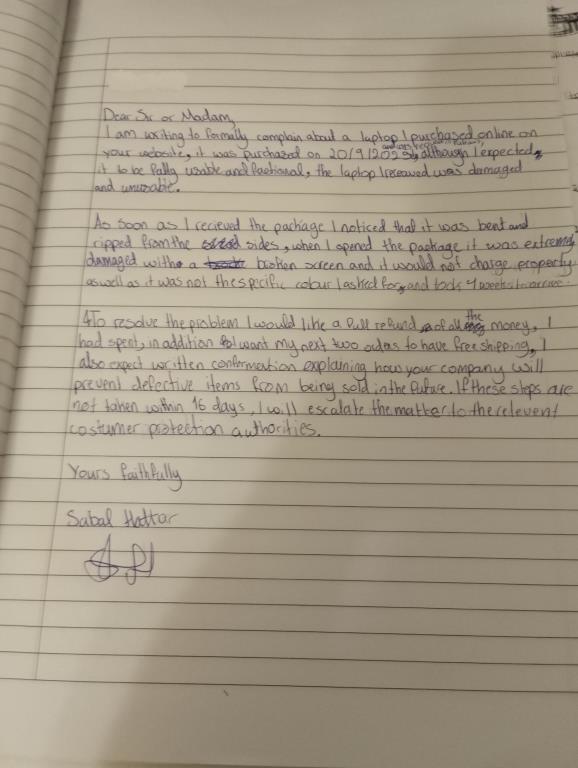 Dear Sir or Madam,
I am writing to formally complain about a laptop I purchased online on
your website, it was purchased on 20/9/2025, although I expected
it to be fully usable and functional, the laptop I recieved was damaged
and unusable.
As soon as I recieved the package I noticed that it was bent and
ripped from the sides, when I opened the package it was extremly
damaged with a broken screen and it would not charge properly
aswell as it was not the specific colour I asked for, and took 4 weeks to arrive.
To resolve the problem I would like a full refund of all the money, I
had spent, in addition I want my next two orders to have free shipping, I
also expect written confermation explaining how your company will
prevent defective items from being sold in the future. If these steps are
not taken within 16 days, I will escalate the matter to the relevent
costumer protection authorities.
Yours faithfully
Sabal Hattar